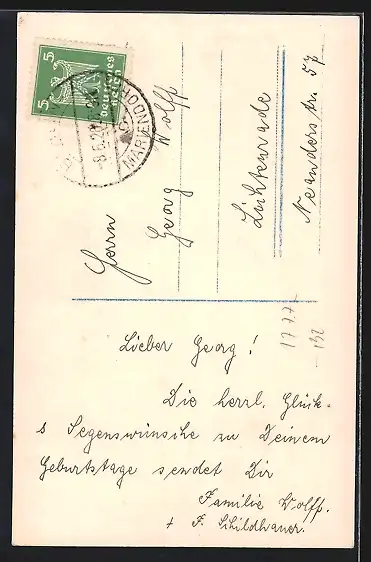 5 5
Deutsches
Reich
MARIENDORF
Herrn
Georg Wolff
Lichtenrade
Neanderstr. 57
Lieber Georg!
Die herzl. Glück-
s Segenswünsche zu Deinem
Geburtstage sendet Dir
Familie Wolff.
+ F. Schildhauer.